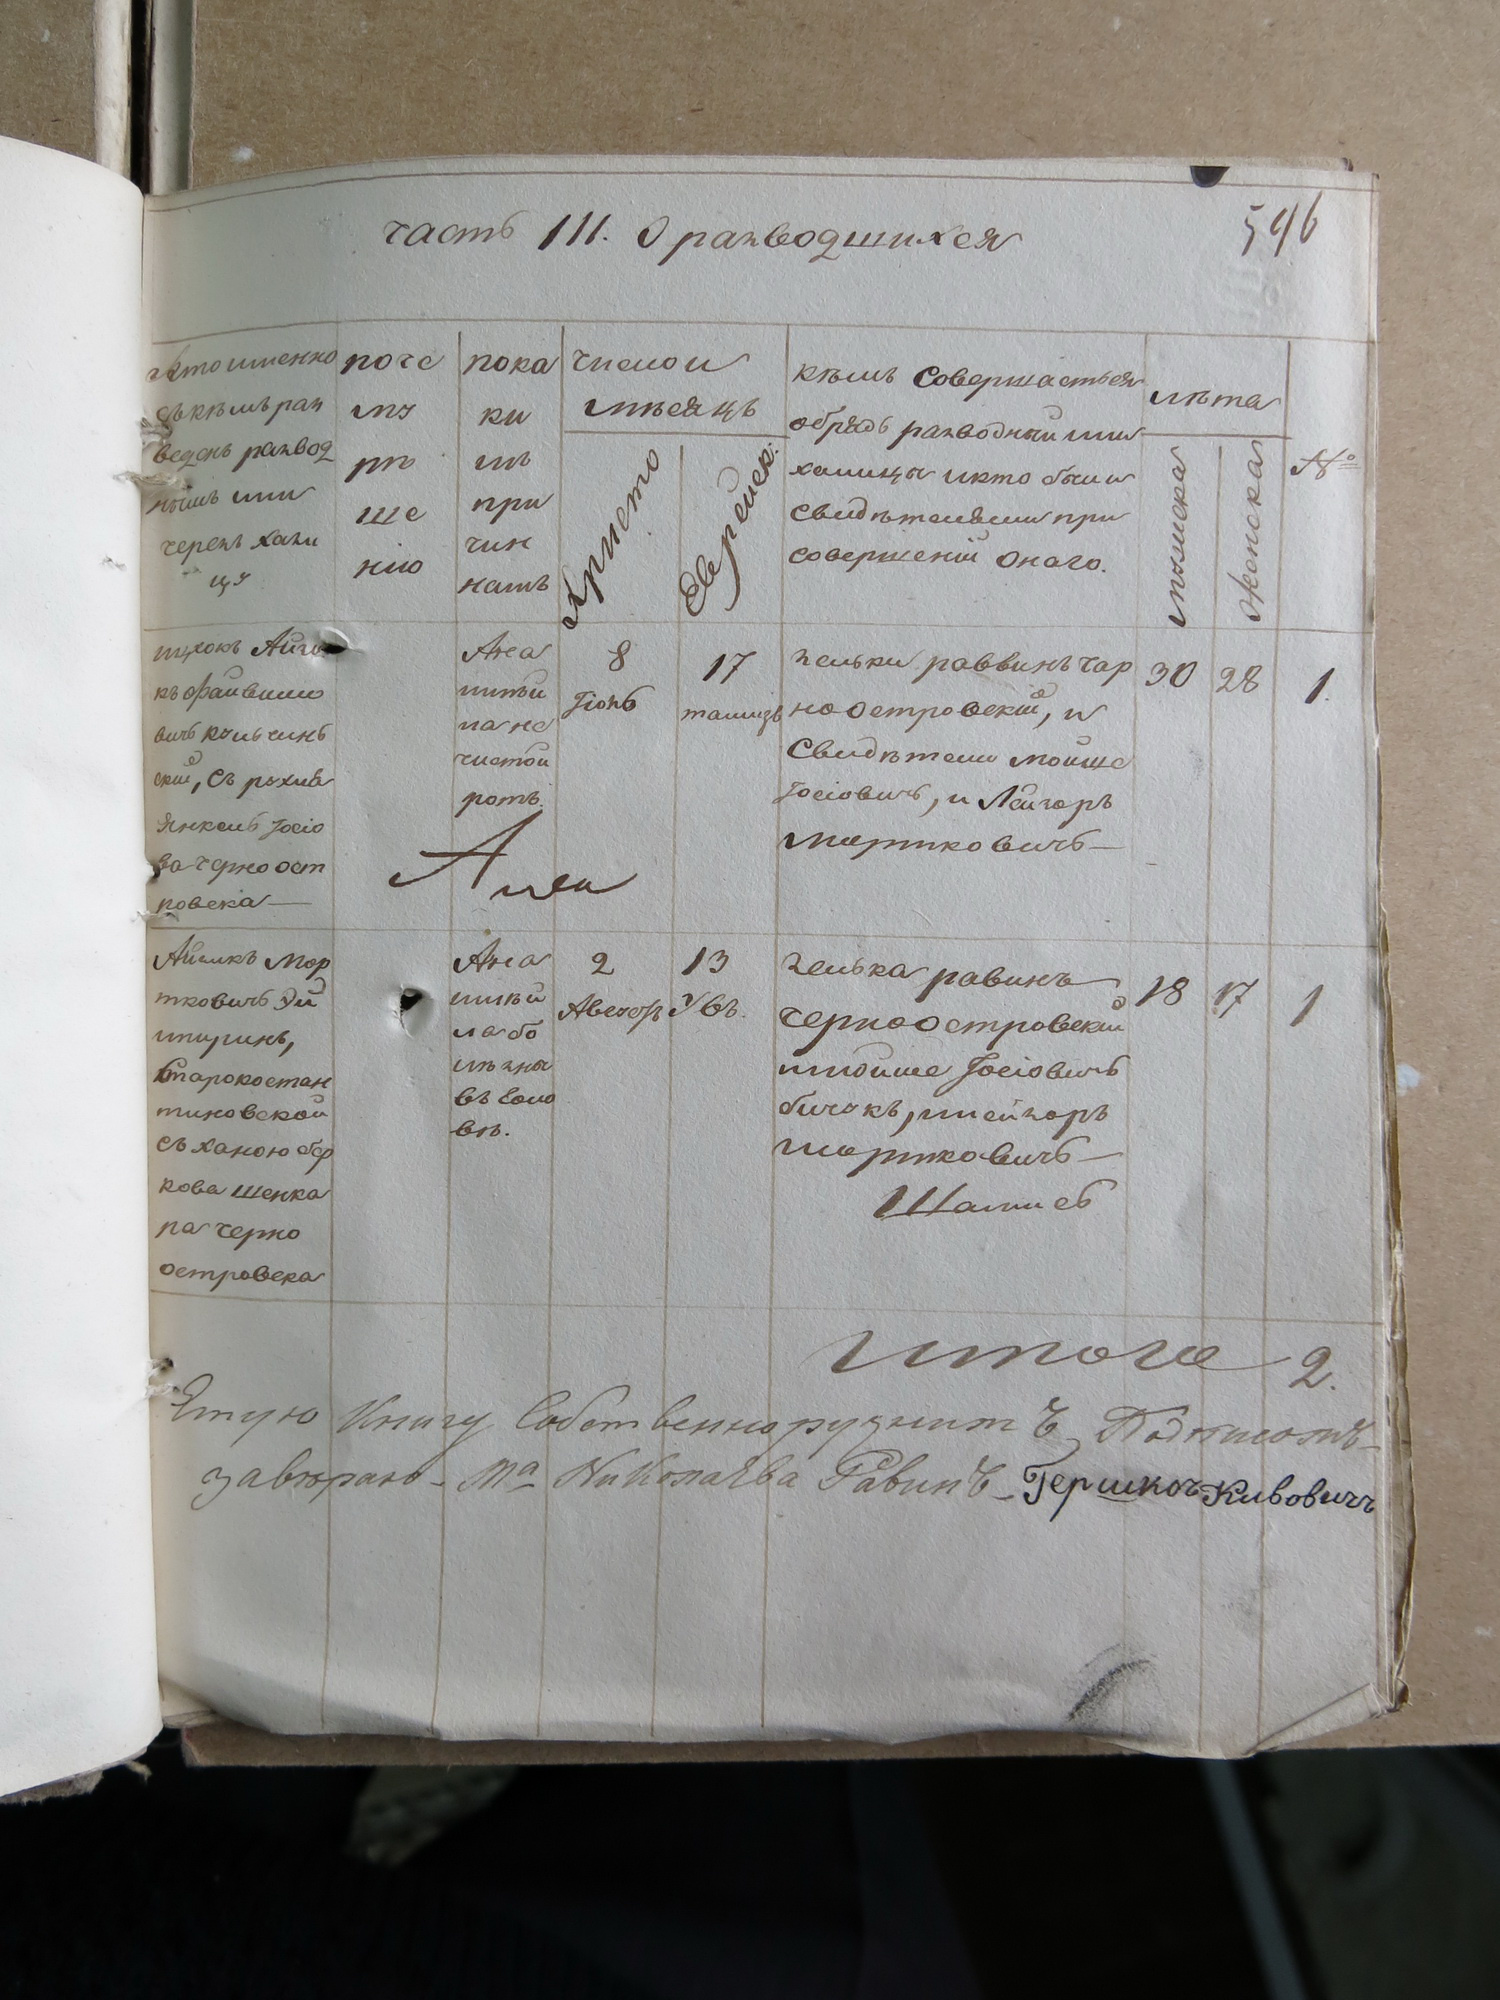 часть III. О разводшихся
546
кто именно
съ кѣмъ раз
веденъ развод
нымъ или
черезъ хали
цу
по че
му
рѣ
ше
нію
по ка
ки
мъ
при
чин
намъ
число и
мѣсяцъ
Христо
Еврейск:
кѣмъ совершается
обрядъ разводный или
халицы и кто были
свидѣтелями при
совершеніи онаго.
лѣта
мужеска
женска
№
Ицхокъ Айзы
къ Файвило
вичъ Кульчинъ
скій, съ рухлѣ
Янкель Іосіо
ва черно ост
ровска
8
Іюнь
17
тамизъ
Зельки раввинъ чар
ноостровскій, и
Свидѣтели Мойше
Іосіовичъ, и Лейзоръ
Мортковичъ
30
28
1.
чистой
ротѣ.
Айзикъ Мор
тковичъ
Старокостан
тиновской
съ ханою бер
кова шенка
ра черно
островска
2
Августъ
13
Увъ.
Зелька равинъ
черноостровскій
и мойше Іосіовичъ
бичокъ, и лейзоръ
Мортковичъ
Шамисъ
18
17
1
Итого 2.
Етую Книгу Собственноручнимъ Подписомъ
завѣраю - Ма Николаева Равинъ - Гершкоъ Кивовичъ